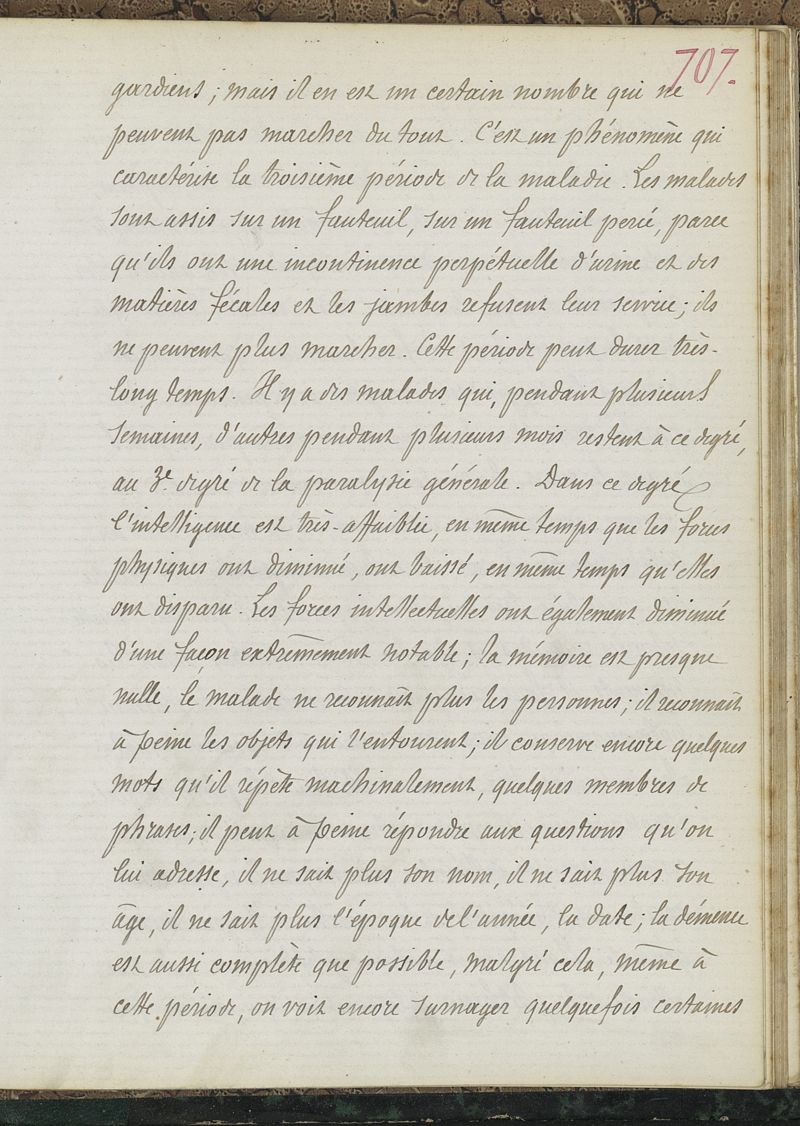 707.
gardiens ; mais il en est un certain nombre qui ne
peuvent pas marcher du tout . C'est un phénomène qui
caractérise la troisième période de la maladie . Les malades
sont assis sur un fauteuil, sur un fauteuil percé, parce
qu'ils ont une incontinence perpétuelle d'urine et des
matières fécales et les jambes refusent leur service ; ils
ne peuvent plus marcher . Cette période peut durer très-
long temps . Il y a des malades qui, pendant plusieurs
semaines, d'autres pendant plusieurs mois restent à ce degré,
au 3e degré de la paralysie générale . Dans ce degré
l'intelligence est très-affaiblie, en même temps que les forces
physiques ont diminué, ont baissé, en même temps qu'elles
ont disparu . Les forces intellectuelles ont également diminué
d'une façon extrêmement notable ; la mémoire est presque
nulle, le malade ne reconnaît plus les personnes ; il reconnaît
à peine les objets qui l'entourent ; il conserve encore quelques
mots qu'il répète machinalement, quelques membres de
phrases ; il peut à peine répondre aux questions qu'on
lui adresse, il ne sait plus son nom, il ne sait plus son
âge, il ne sait plus l'époque de l'année, la date ; la démence
est aussi complète que possible, malgré cela, même à
cette période, on voit encore surnager quelquefois certaines